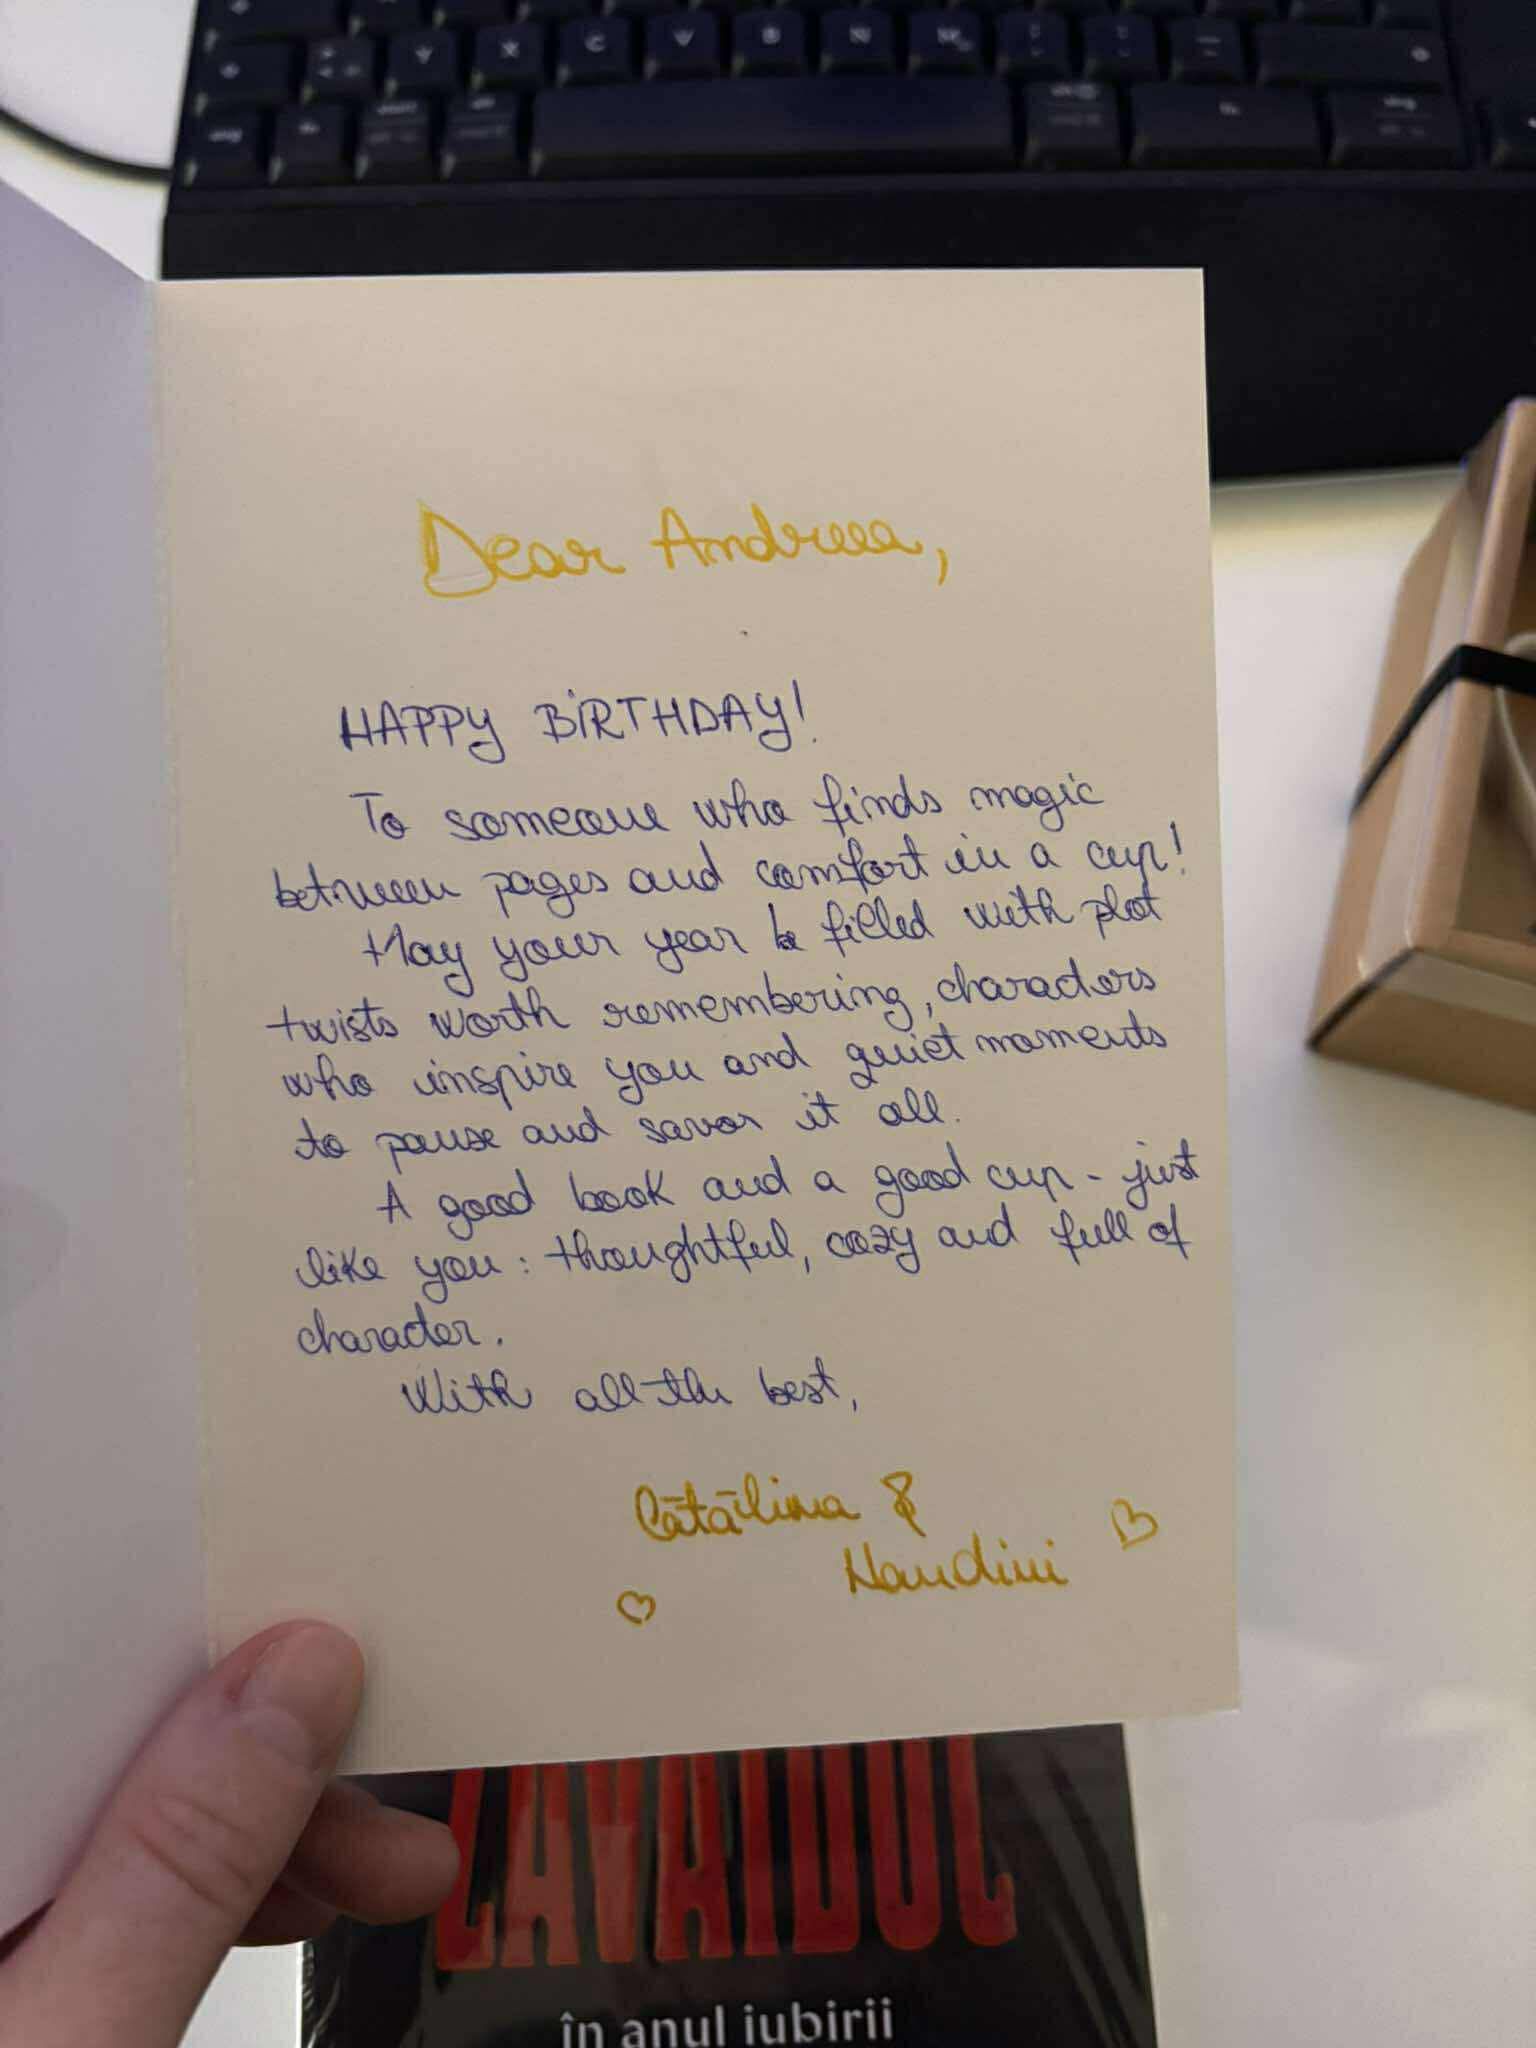 Y X C V B N M
Dear Andreea,
HAPPY BiRTHDAY!
To someone who finds magic
between pages and comfort in a cup!
May your year be filled with plot
twists worth remembering, characters
who inspire you and quiet moments
to pause and savor it all.
A good book and a good cup - just
like you: thoughtful, cozy and full of
character.
With all the best,
Cătălina &
Houdini
ZAVAIDOC
în anul iubirii